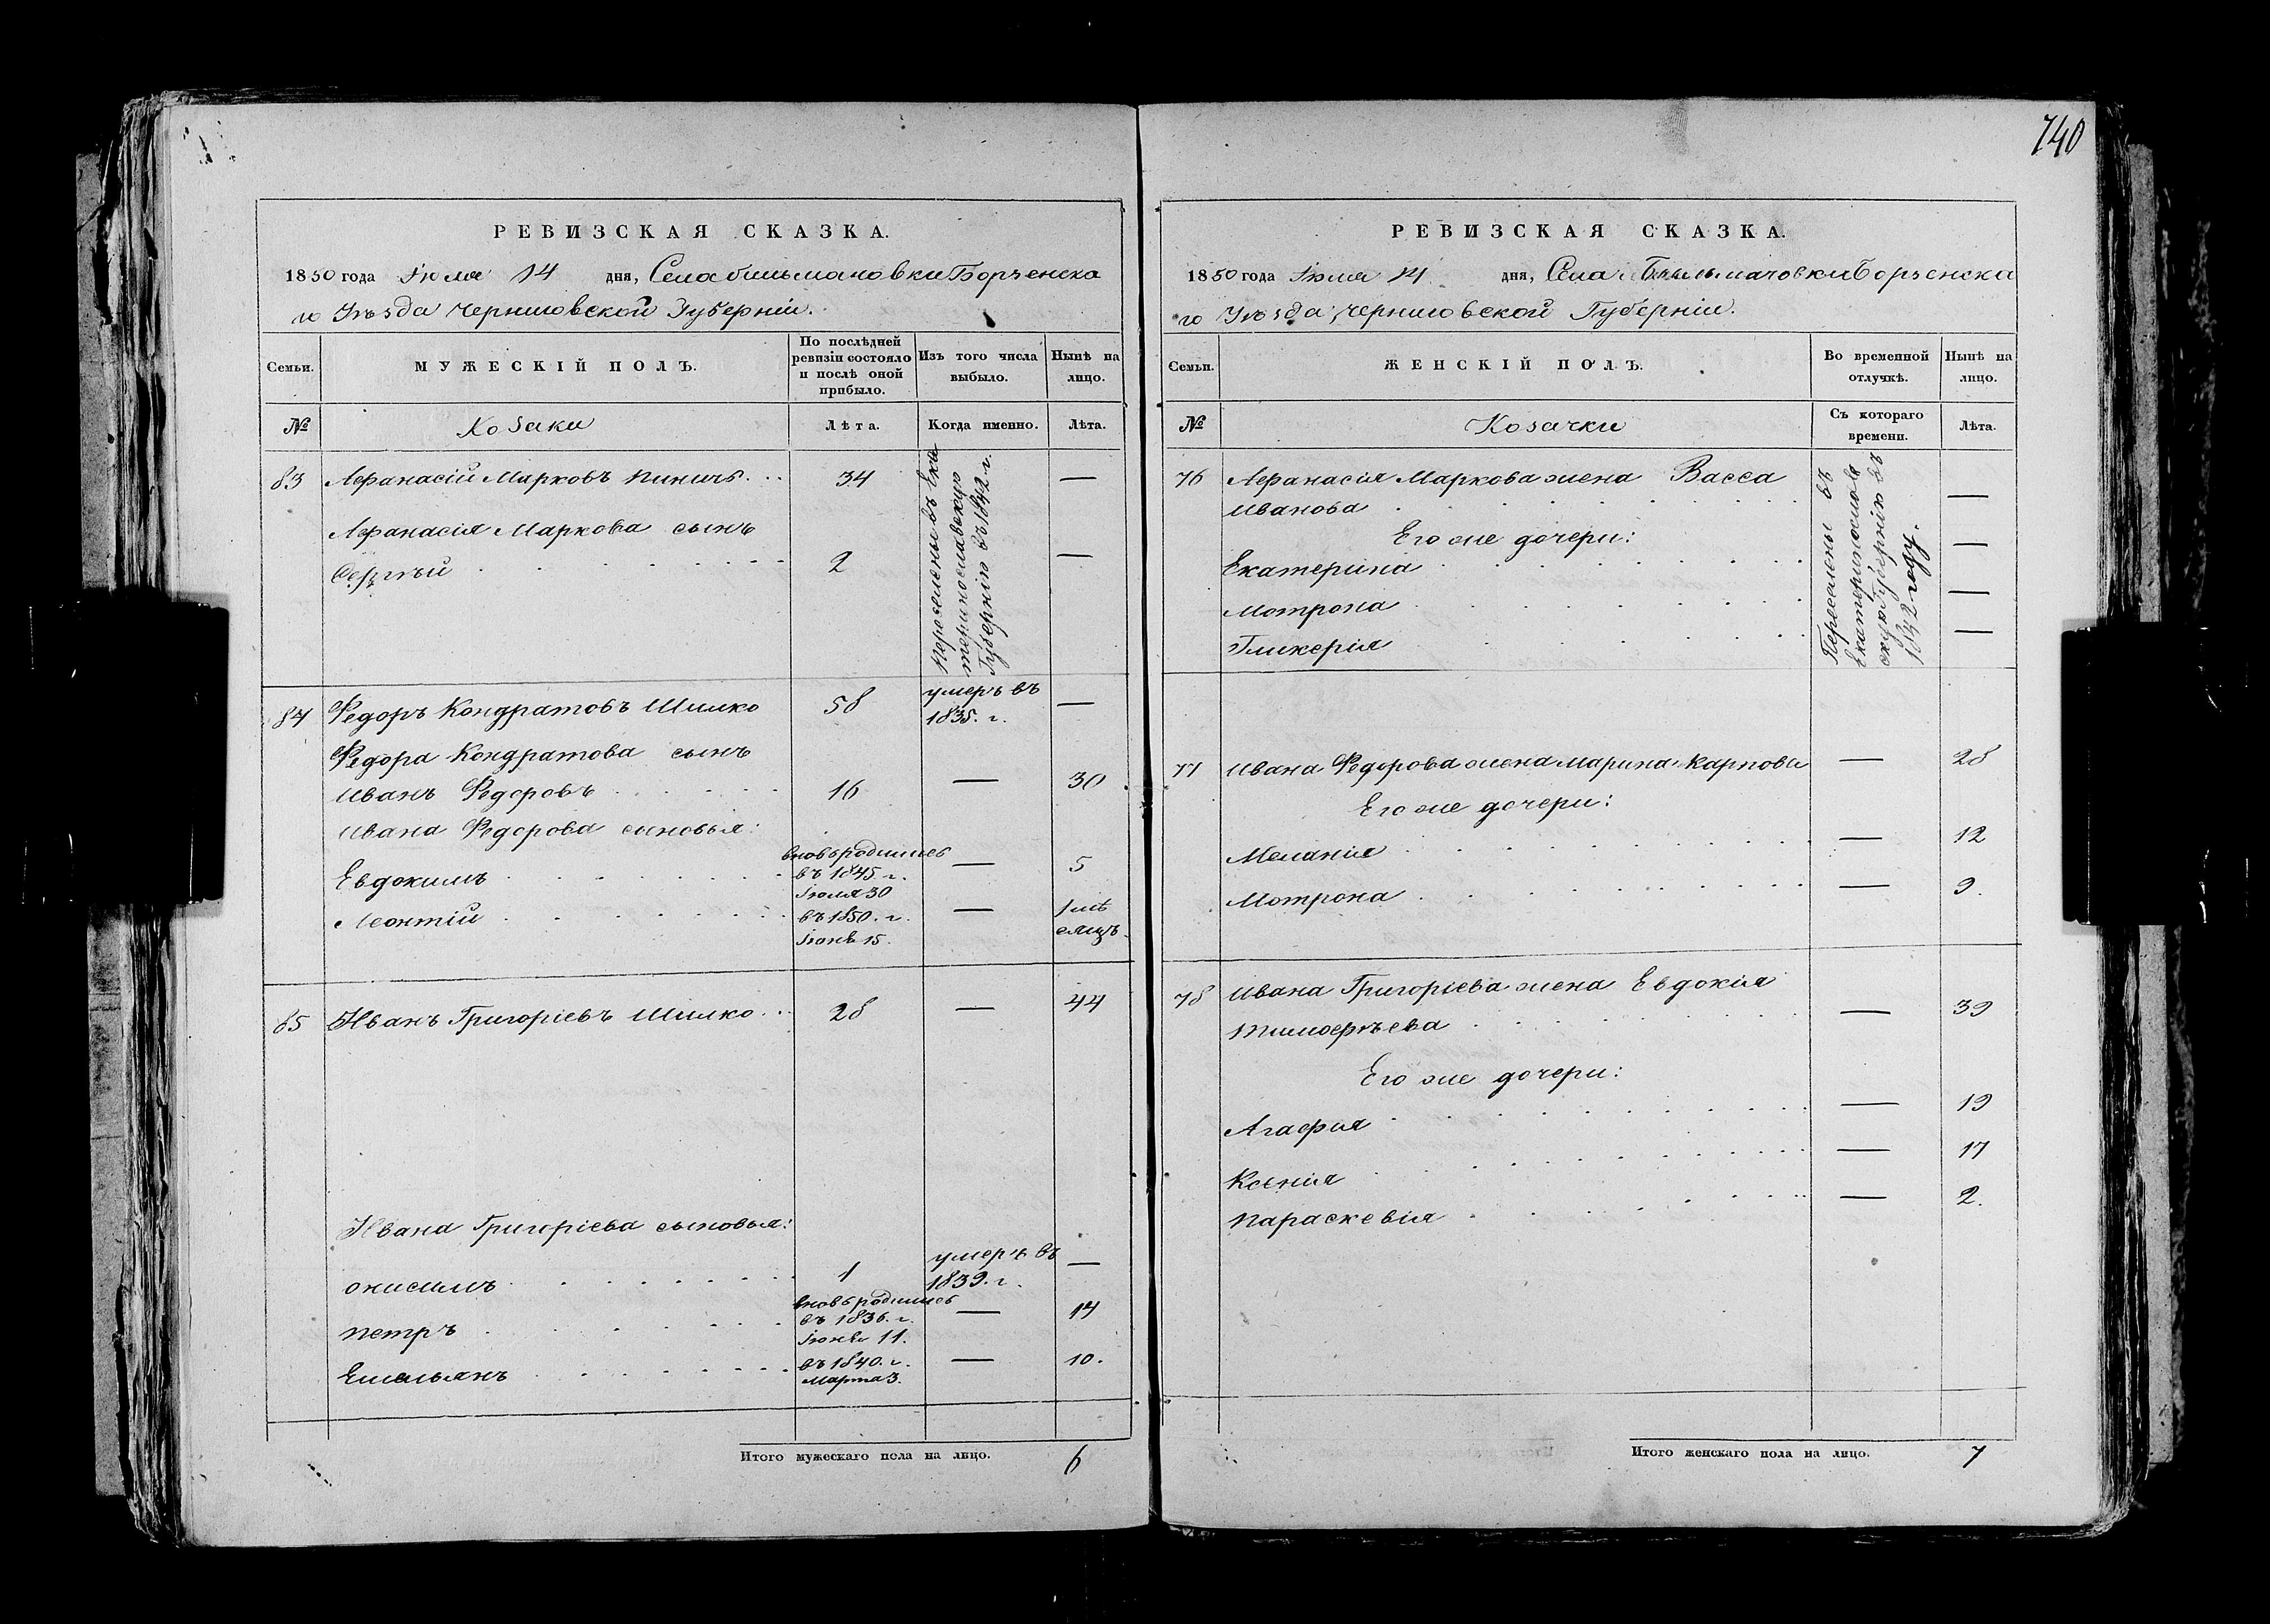 740
РЕВИЗСКАЯ СКАЗКА.
1850 года Іюля 14 дня, Села Бильмачовки Борзенска
го Уѣзда Черниговской Губерніи.
Семьи.
МУЖЕСКІЙ ПОЛЪ.
По послѣдней
ревизіи состояло
и послѣ оной
прибыло.
Изъ того числа
выбыло.
Нынѣ на
лицо.
№
Козаки
Лѣта.
Когда именно.
Лѣта.
83 Афанасій Марковъ 34 —
Переселены въ Ека
теринославскую
Губернію въ 1842 г.
Афанасія Маркова сынъ
Сергѣй 2 —
84 Федоръ Кондратовъ Шилко 58 умеръ въ —
1835. г.
Федора Кондратова сынъ
Иванъ Федоровъ 16 — 30
Ивана Федорова сыновья:
Евдокимъ вновь родились — 5
въ 1845. г.
Іюля 30
Леонтій въ 1850. г. — 1 мѣ
Іюня 15. сяцъ.
85 Иванъ Григоріевъ Шилко 28 — 44
Ивана Григоріева сыновья:
Онисимъ 1 умеръ въ —
1839. г.
Петръ вновь родились — 14
въ 1836. г.
Іюня 11.
Емельянъ въ 1840. г. — 10.
Марта 3.
Итого мужескаго пола на лицо. 6
РЕВИЗСКАЯ СКАЗКА.
1850 года Іюля 14 дня, Села Бильмачовки Борзенска
го Уѣзда, Черниговской Губерніи.
Семьи.
ЖЕНСКІЙ ПОЛЪ.
Во временной
отлучкѣ.
Нынѣ на
лицо.
№
Козачки
Съ котораго
времени.
Лѣта.
76 Афанасія Маркова жена Васса
Иванова —
Переселены въ
Екатеринослав
скую Губернію въ
1842 году.
Его же дочери:
Екатерина —
Мотрона —
Гликерія —
77 Ивана Федорова жена Марина Карпова — 28
Его же дочери:
Меланія — 12
Мотрона — 9.
78 Ивана Григоріева жена Евдокія
Тимофѣева — 39
Его же дочери:
Агафія — 19
Ксенія — 17
Параскевія — 2.
Итого женскаго пола на лицо. 7